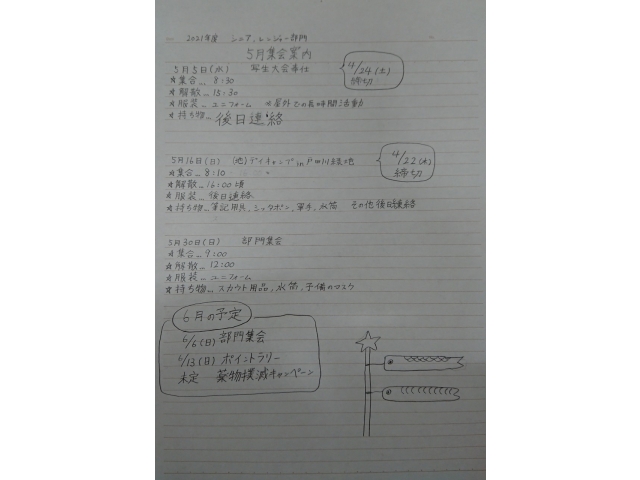 2021年度 シニア、レンジャー部門
5月集会案内
5月5日(水) 写生大会奉仕
4/24(土)
締切
★集合… 8:30
★解散… 15:30
★服装… ユニフォーム ※屋外での長時間活動
★持ち物… 後日連絡
5月16日(日) (地)デイキャンプin 戸田川緑地
4/22(木)
締切
★集合… 8:10
★解散… 16:00頃
★服装… 後日連絡
★持ち物… 筆記用具、シュラポン、軍手、水筒 その他後日連絡
5月30日(日) 部門集会
★集合… 9:00
★解散… 12:00
★服装… ユニフォーム
★持ち物… スカウト用品、水筒、予備のマスク
6月の予定
6/6(日) 部門集会
6/13(日) ポイントラリー
未定 薬物撲滅キャンペーン